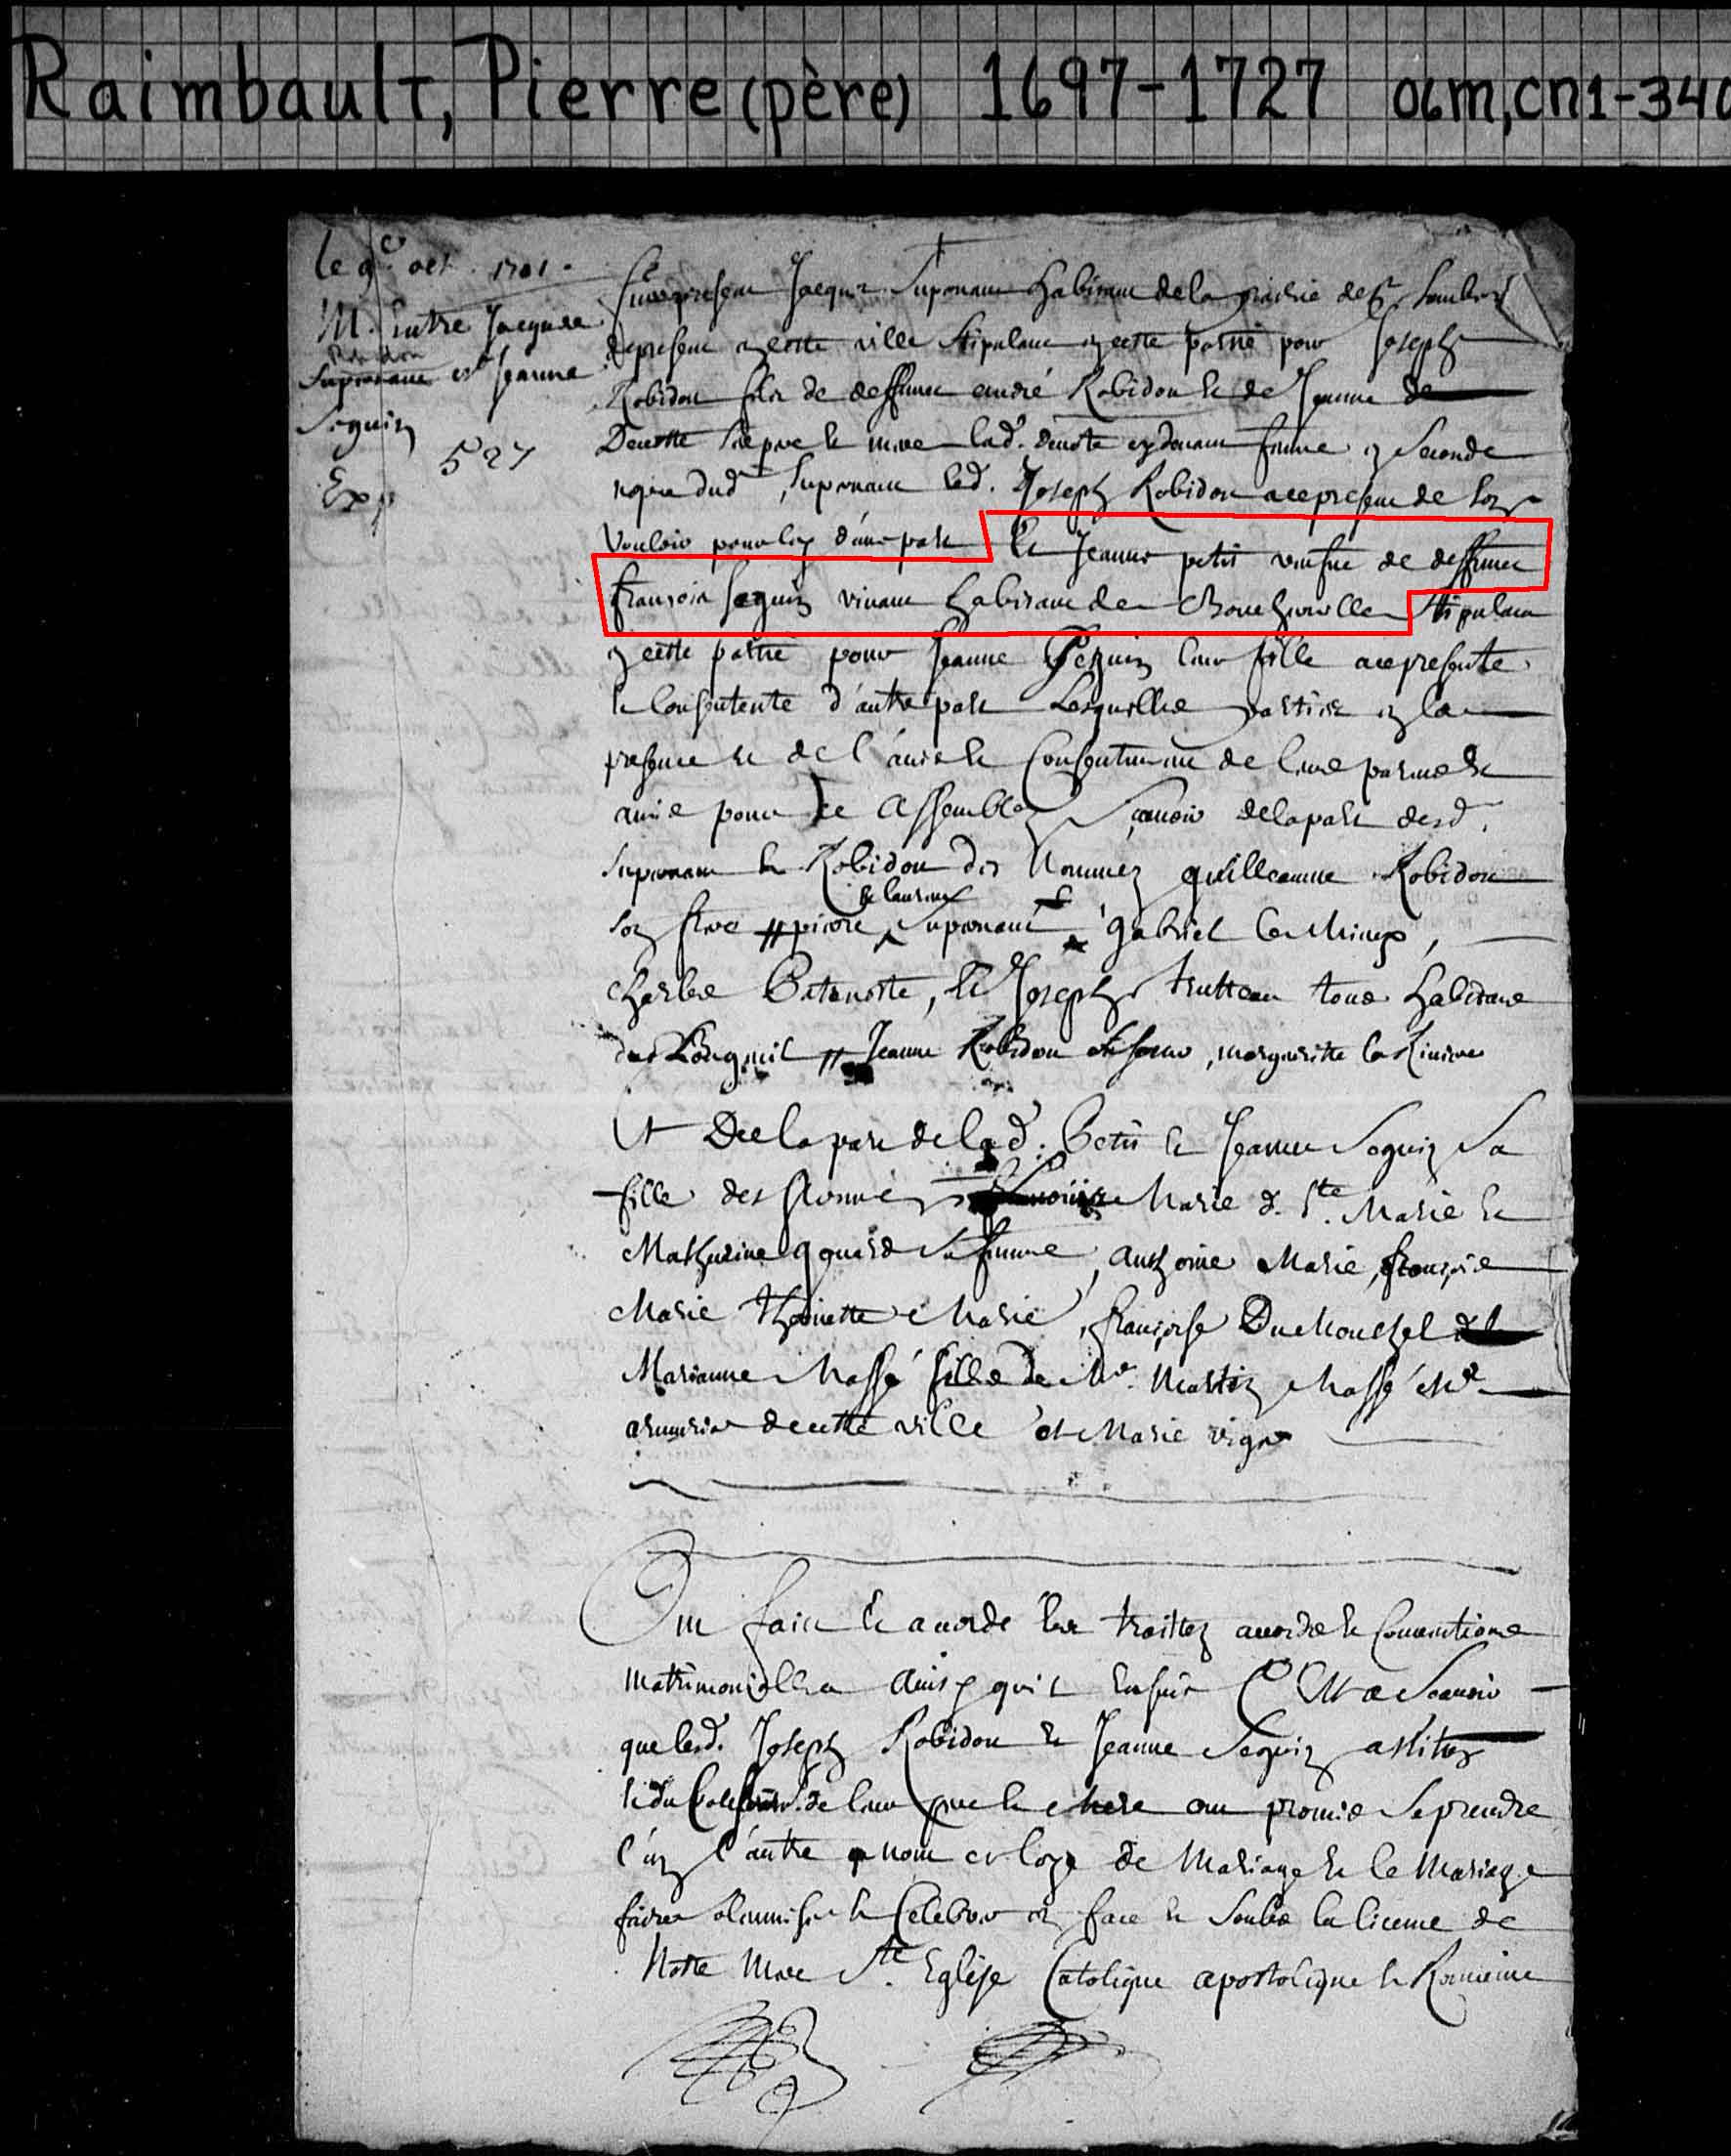 Raimbault, Pierre (père) 1697-1727 06m,cn1-340
le 9e oct. 1701.
M. Entre Jacques
Robidou
Supernant et Jeanne
Seguin
527
Exp
Jacques Supernant habitant de la prairie de St. Lambert
de present en cette ville stipulant en cette partie pour Joseph
Robidou fils de deffunct André Robidou et de Jeanne de
Denotte ses pere et mere lad. denote epouse femme en seconde
nopce dud. Supernant led. Joseph Robidou a ce present de son
vouloir pour luy d'une part Et Jeanne petit veufue de deffunct
françois seguin viuant habitant de Boucherville stipulant
en cette partie pour Jeanne Seguin leur fille a ce presente
et Consentente d'autre part Lesquelles parties en la
presence et de l'auis et Consentement de leurs parens et
amis pour ce assemblez Sçauoir de la part desd.
Supernant et Robidou des Nommez guilleaume Robidou
son frere # pierre et laurent Supernant Gabriel
Charles Patenoste, Et Joseph trutteau tous habitans
de Longueil # Jeanne Robidou sa soeur, margueritte
Et De la part de lad. Petit et Jeanne Seguin Sa
fille des Nommé Marie d. Ste. Marie et
Mathurine gouard Sa femme, anthoine Marie, françois
Marie Thoinette Marie, françoise DuMouchel
Marianne Massé fille de Mr. Martin Massé Me
armurier de cette ville et Marie vigor
Ont faict et accordé les traittez accords et Conventions
Matrimonialles ainsy qu'il Ensuit C'Est a Scauoir
que lesd. Joseph Robidou et Jeanne Seguin assistez
et du Consentement de leur pere et Mere ont promis se prendre
l'un l'autre a nom et loye de Mariage et le Mariage
faire solemniser et Celebrer en face et soubs la licence de
Notre Mere Ste. Eglise Catolique apostolique et Romaine